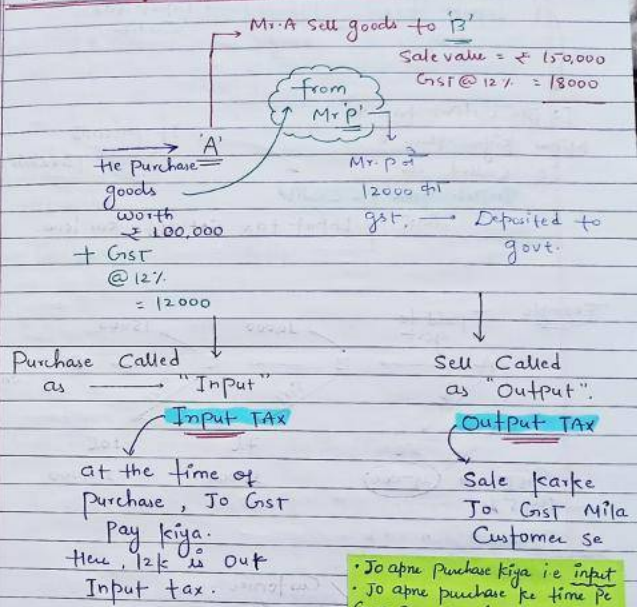 Mr. A Sell goods to 'B'
Sale value = ₹ 150,000
GST @ 12% = 18000
from
Mr 'P'
'A'
He Purchase
goods
worth
₹ 100,000
+ GST
@ 12%
= 12000
Mr. P ने
12000 का
gst. → Deposited to
govt.
Purchase Called
as → "Input"
Input TAX
at the time of
Purchase, Jo GST
Pay kiya.
Here, 12k is our
Input tax.
Sell Called
as "Output".
Output TAX
Sale Karke
Jo GST Mila
Customer se
• Jo apne Purchase kiya i.e input
• Jo apne purchase ke time Pe